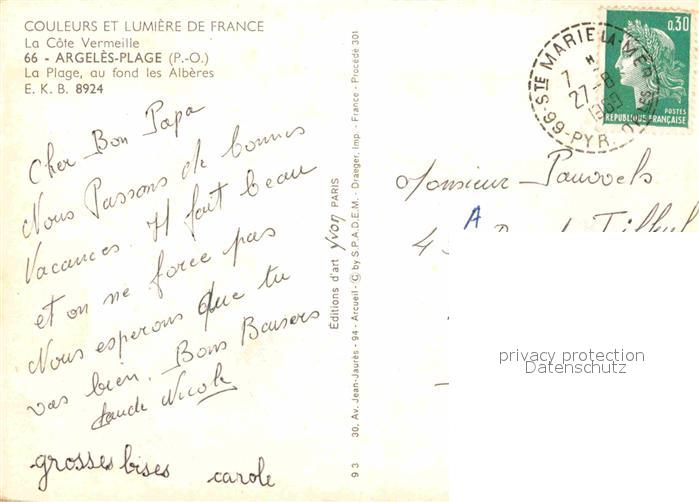 COULEURS ET LUMIÈRE DE FRANCE
La Côte Vermeille
66 - ARGELÈS-PLAGE (P.-O.)
La Plage, au fond les Albères
E. K. B. 8924
Cher Bon Papa
Nous Passons de bonnes
Vacances. Il fait beau
et on ne force pas
Nous esperons que tu
vas bien. Bons Baisers
Claude Nicole
grosses bises carole
Editions d'art yvon PARIS
30, Av. Jean-Jaurès - 94 - Arcueil - © by S.P.A.D.E.M. - Draeger, Imp. - France - Procédé 301
93
STE MARIE LA MER
7 H
27-8
66-PYR. 
0,30
POSTES
REPUBLIQUE FRANÇAISE
Monsieur Pauwels
A
4
privacy protection
Datenschutz